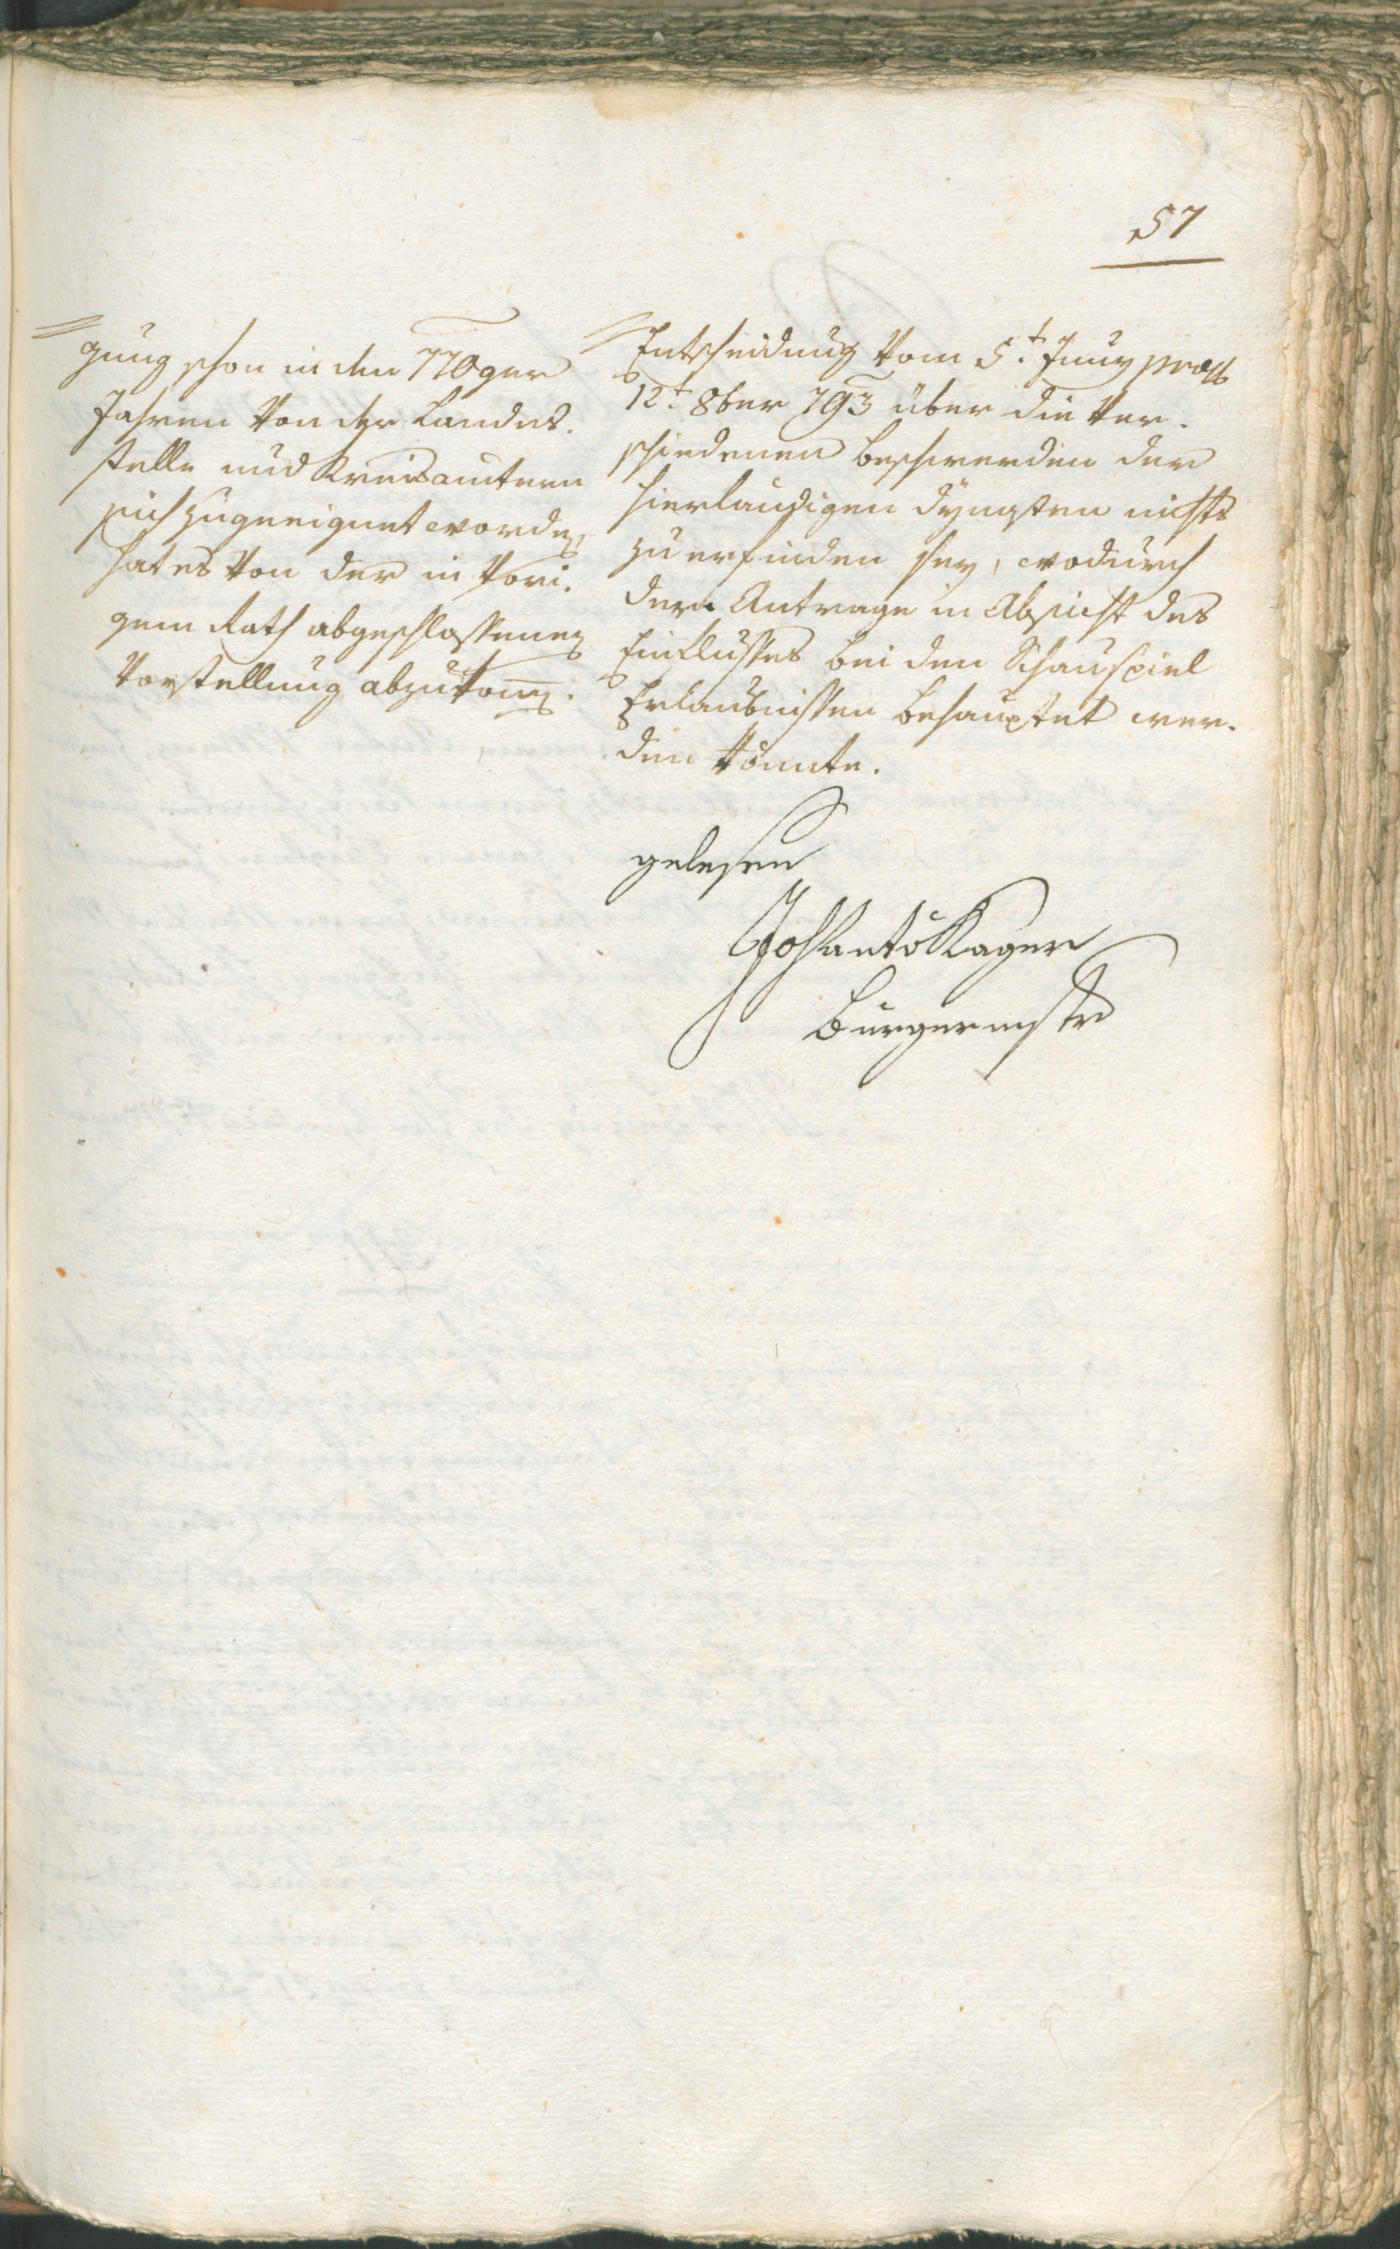 57
gung schon in den 770ger
Jahren von der Landes-
stelle und Kreisämtern
sich zugeeignet worden,
hat es von der in vori-
gem Rath abgeschlossenen
Vorstellung abzukom̅en.
Entscheidung vom 5.t Juny
12.t 8ber 793 über die ver-
schiedenen Beschwerden der
hierländigen Dynasten nichts
zu erfinden sey, wodurch
der Antrage in Absicht des
Einflusses bei den Schauspiel
Erlaubnissen behauptet wer-
den könnte.
gelesen
Joh Kager
Burgermstr